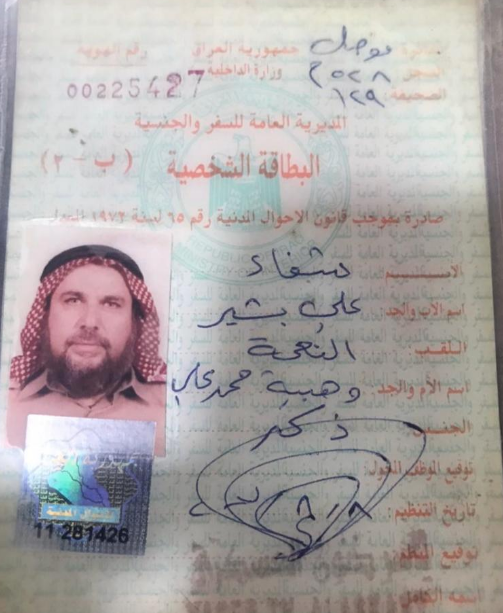 جمهورية العراق
وزارة الداخلية
رقم الهوية
صادرة موصل
السجل ٥٢٨ م
الصحيفة ١٢٩
00225427
المديرية العامة للسفر والجنسية
البطاقة الشخصية (ب - ٢)
صادرة بموجب قانون الاحوال المدنية رقم ٦٥ لسنة ١٩٧٢ المعدل
الاسم شفاء
اسم الاب والجد علي بشير
اللقب النعمة
اسم الأم والجد وهبية محمد علي
الجنس ذكر
توقيع الموظف المخول
تاريخ التنظيم
توقيع المنظم
اسمه الكامل
الأحوال المدنية
11 281426